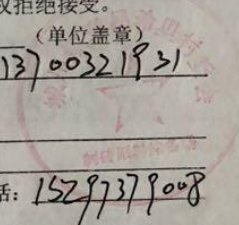 权拒绝接受。
(单位盖章)
13700321931
话：15297379008